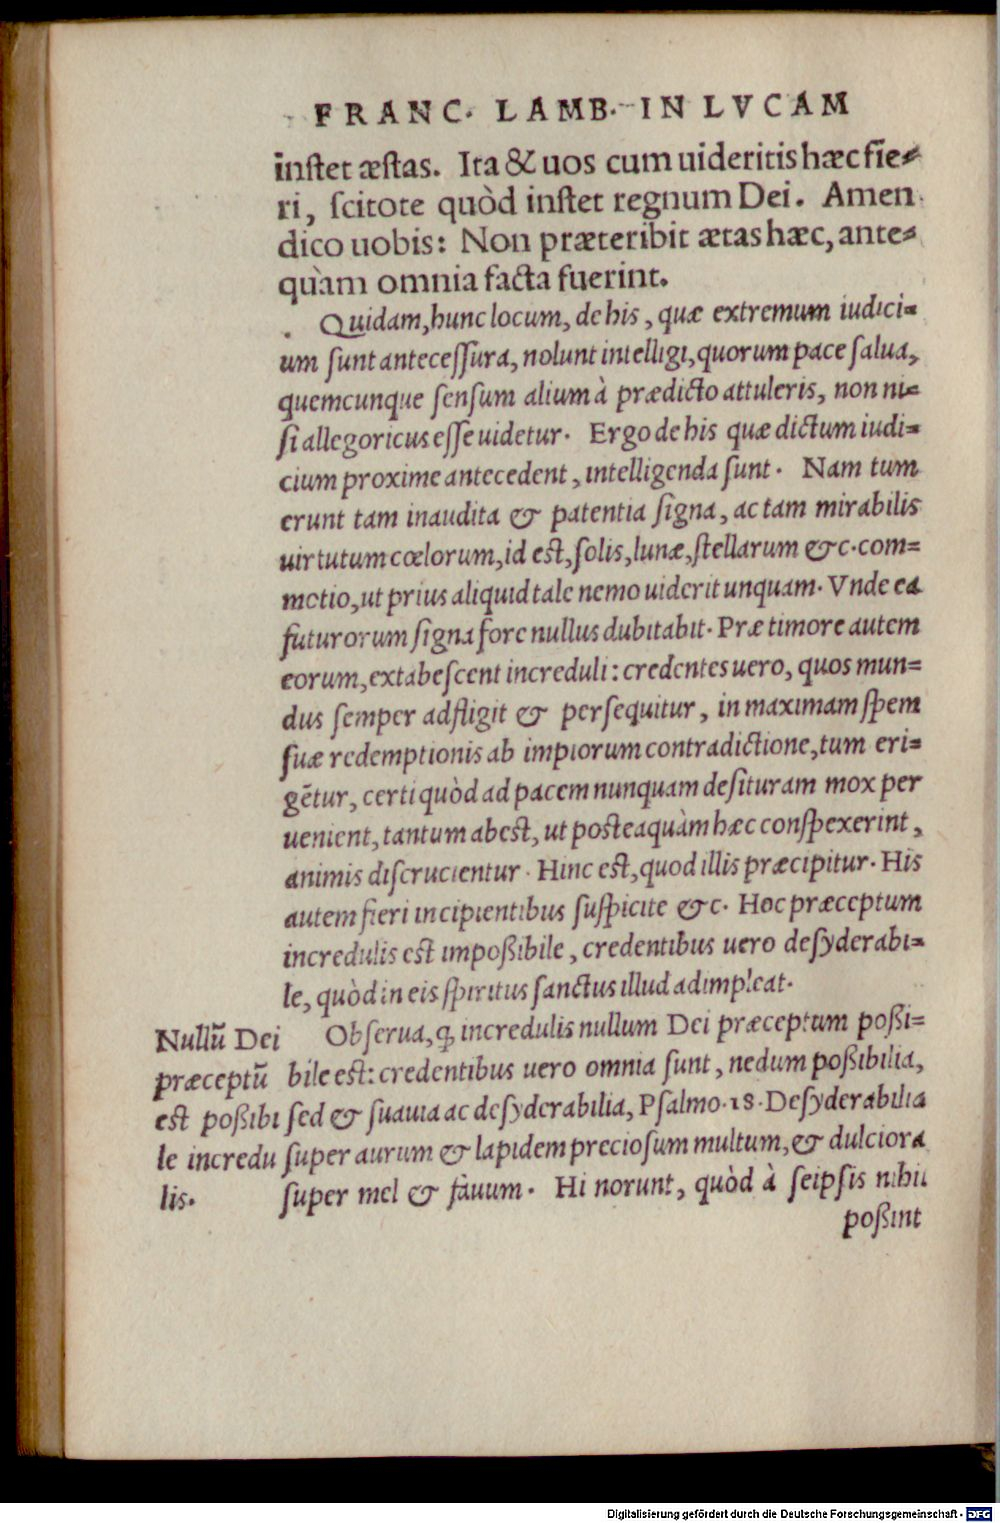 FRANC. LAMB. IN LVCAM
instet æstas. Ita & uos cum uideritis hæc fie-
ri, scitote quòd instet regnum Dei. Amen
dico uobis: Non præteribit ætas hæc, ante-
quàm omnia facta fuerint.
Quidam, hunc locum, de his, quæ extremum iudici-
um sunt antecessura, nolunt intelligi, quorum pace salua,
quemcunque sensum alium à prædicto attuleris, non ni-
si allegoricus esse uidetur. Ergo de his quæ dictum iudi-
cium proxime antecedent, intelligenda sunt. Nam tum
erunt tam inaudita & patentia signa, ac tam mirabilis
uirtutum cœlorum, id est, solis, lunæ, stellarum &c. com-
motio, ut prius aliquid tale nemo uiderit unquam. Vnde ea
futurorum signa fore nullus dubitabit. Præ timore autem
eorum, extabescent increduli: credentes uero, quos mun-
dus semper adfligit & persequitur, in maximam spem
suæ redemptionis ab impiorum contradictione, tum eri-
gẽtur, certi quòd ad pacem nunquam desituram mox per
uenient, tantum abest, ut posteaquàm hæc conspexerint,
animis discrucientur. Hinc est, quod illis præcipitur. His
autem fieri incipientibus suspicite &c. Hoc præceptum
incredulis est impoßibile, credentibus uero desyderabi-
le, quòd in eis spiritus sanctus illud adimpleat.
Obserua, ꝙ incredulis nullum Dei præceptum poßi-
bile est: credentibus uero omnia sunt, nedum poßibilia,
sed & suauia ac desyderabilia, Psalmo. 18. Desyderabilia
super aurum & lapidem preciosum multum, & dulciora
super mel & fauum. Hi norunt, quòd à seipsis nihil
poßint
Nullũ Dei
præceptũ
est poßibi
le incredu
lis.
Digitalisierung gefördert durch die Deutsche Forschungsgemeinschaft - DFG